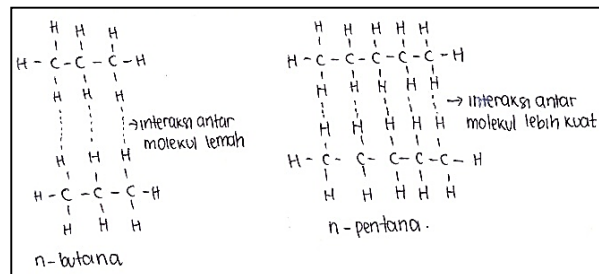 H H H
H - C - C - C - H
H H H
→ interaksi antar
molekul lemah
H H H
H - C - C - C - H
H H H
n-butana
H H H H H
H - C - C - C - C - C - H
H H H H H
→ interaksi antar
molekul lebih kuat
H H H H H
H - C - C - C - C - C - H
H H H H H
n-pentana.